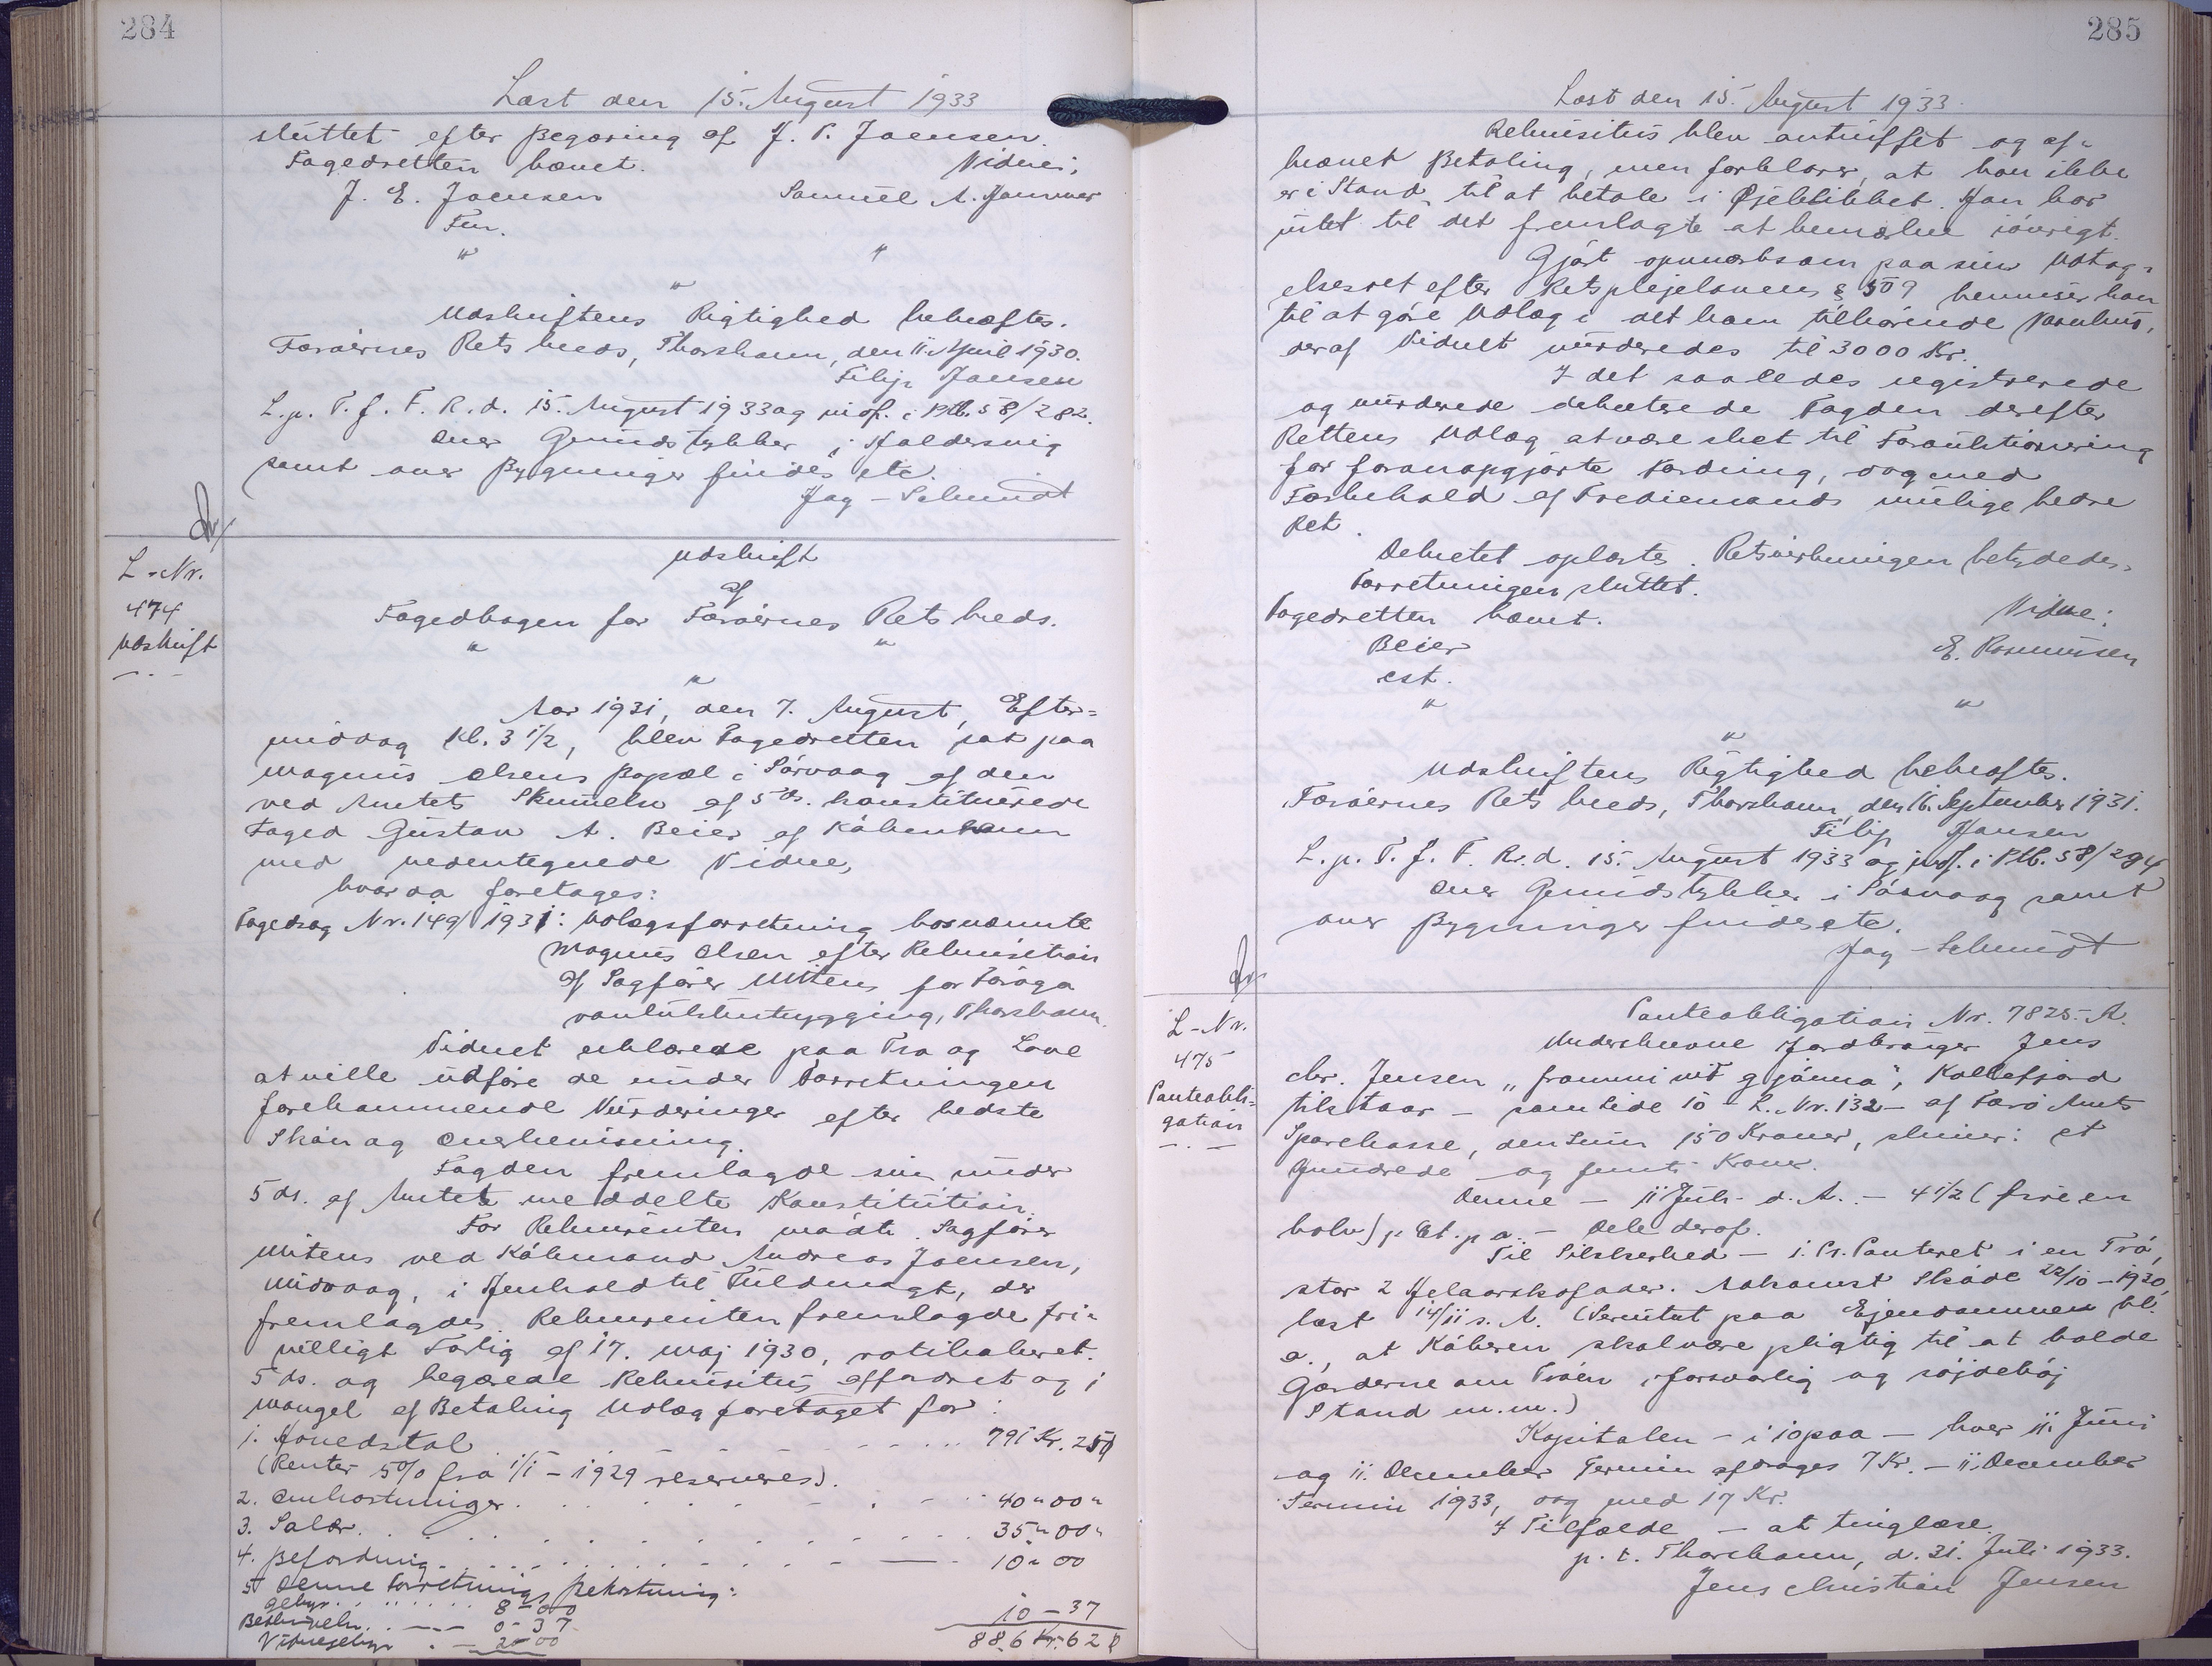 284
Læst den 15. August 1933
sluttet efter Begæring af J. P. Joensen.
Fogedretten hævet. Vidner:
J. E. Joensen Samuel A. Hammer
Fm.
" "
"
Udskriftens Rigtighed bekræftes.
Færøernes Retskreds, Thorshavn, den 11. April 1930.
Filip Hansen
L. p. T. f. F. R. d. 15. August 1933 og indf. i Ptb. 58/282.
Over Grundstykker i Haldersvig
samt over Bygninger findes etc.
Jag-Schmidt
L-Nr.
474
Udskrift
Udskrift
af
Fogedbogen for Færøernes Retskreds.
" "
"
Aar 1931, den 7. August, Efter=
middag Kl. 3 1/2, blev Fogedretten sat paa
Magnus Olsens Bopæl i Sörvaag af den
ved Amtets Skrivelse af 5 ds. konstituerede
Foged Gustav A. Beier af København
med nedentegnede Vidne,
hvor da foretages:
Fogedsag Nr. 149/1931: Udlægsforretning hos nævnte
Magnus Olsen efter Rekvisition
af Sagfører Mitens for Föroya
vanlukkutrygging, Thorshavn.
Vidnet erklærede paa Tro og Love
at ville udføre de under Forretningen
forekommende Vurderinger efter bedste
Skön og Overbevisning.
Fogden fremlagde sin under
5 ds. af Amtet meddelte Konstitution.
For Rekvirenten mödte Sagfører
Mitens ved Købmand Andreas Joensen,
Midvaag, i Henhold til Fuldmagt, der
fremlagdes. Rekvirenten fremlagde fri=
villigt Forlig af 17. Maj 1930, ratihaberet
5 ds. og begærede Rekvisitus affordret og i
Mangel af Betaling Udlæg foretaget for:
1. Hovedstol ..... 791 Kr. 25 Ø
(Renter 5% fra 1/1 - 1929 reserveres).
2. Omkostninger ..... 40 " 00 "
3. Salær ..... 35 " 00 "
4. Befordring ..... 10 " 00
5 Denne Forretnings Bekostning:
Gebyr ..... 8-00
Beskrivelse ..... 0-37
Vidnegebyr ..... 2-00 10-37
886 Kr. 62 Ø
285
Læst den 15. August 1933.
Rekvisitus blev antruffet og af=
krævet Betaling, men forklarer, at han ikke
er i Stand til at betale i Øjeblikket. Han har
intet til det fremlagte at bemærke iövrigt.
Gjort opmærksom paa sin Udtag=
elsesret efter Retsplejelovens § 509 henviser han
til at göre Udlæg i det ham tilhørende Vaanhus,
der af Vidnet vurderedes til 3000 Kr.
I det saaledes registrerede
og vurderede dekreterede Fogden derefter
Rettens Udlæg at være sket til Forauktionering
for foranopgjorte Fordring, dog med
Forbehold af Trediemands mulige bedre
Ret.
Dekretet oplæstes. Retsvirkningen betydedes.
Forretningen sluttet.
Fogedretten hævet. Vidne:
Beier E. Rasmussen
cst.
" "
"
Udskriftens Rigtighed bekræftes.
Færøernes Retskreds, Thorshavn, den 16. September 1931.
Filip Hansen
L. p. T. f. F. R. d. 15. August 1933 og indf. i Ptb. 58/284
Over Grundstykker i Sörvaag samt
over Bygninger findes etc.
Jag-Schmidt
L-Nr.
475
Panteobli=
gation
Panteobligation Nr. 7825. A.
Underskrevne Jordbruger Jens
Chr. Jensen "frammi við gjónna", Kollefjord
tilstaar - som Side 10 - L. Nr. 132 - af Færö Amts
Sparekasse, den Sum 150 Kroner, skriver: et
Hundrede og femti Kroner.
Denne - 11 Juli d. A. - 4 1/2 (fire en
halv) p. Ct. p a. - Dele deraf.
Til Sikkerhed - i. Pr. Panteret i en Trö,
stor 2 Helaarskofoder. Adkomst Sköde 22/10 - 1930,
læst 14/11 s. A. (Servitut paa Ejendommen bl.
a., at Köberen skal være pligtig til at holde
Gærderne om Tröen i forsvarlig og söjdehöj
Stand m.m.)
Kapitalen - i 10 paa - hver 11. Juni
og 11. December Termin afdrages 7 Kr. - 11. December
Termin 1933, dog med 17 Kr.
I Tilfælde - at tinglæse.
p. t. Thorshavn, d. 31. Juli 1933.
Jens Christian Jensen